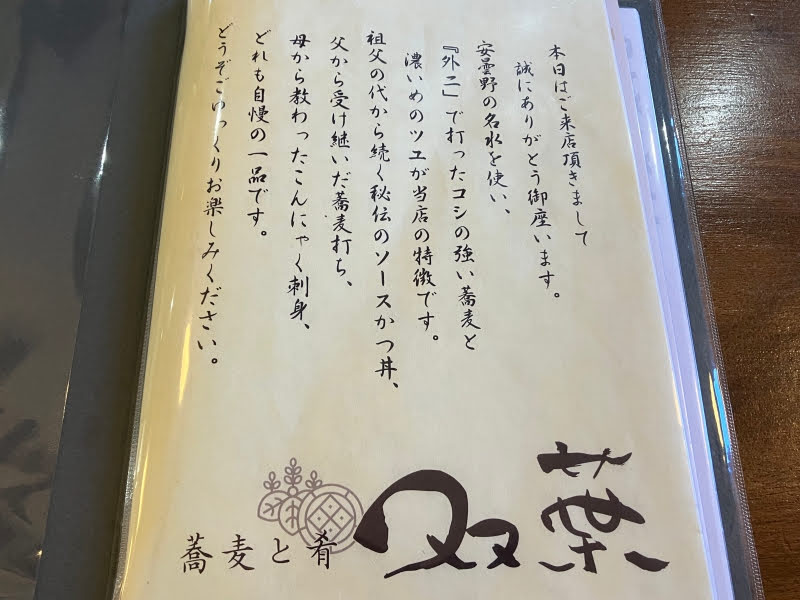 本日はご来店頂きまして
誠にありがとう御座います。
安曇野の名水を使い、
『外二』で打ったコシの強い蕎麦と
濃いめのツユが当店の特徴です。
祖父の代から続く秘伝のソースかつ丼、
父から受け継いだ蕎麦打ち、
母から教わったこんにゃく刺身、
どれも自慢の一品です。
どうぞごゆっくりお楽しみください。
蕎麦と肴
双葉